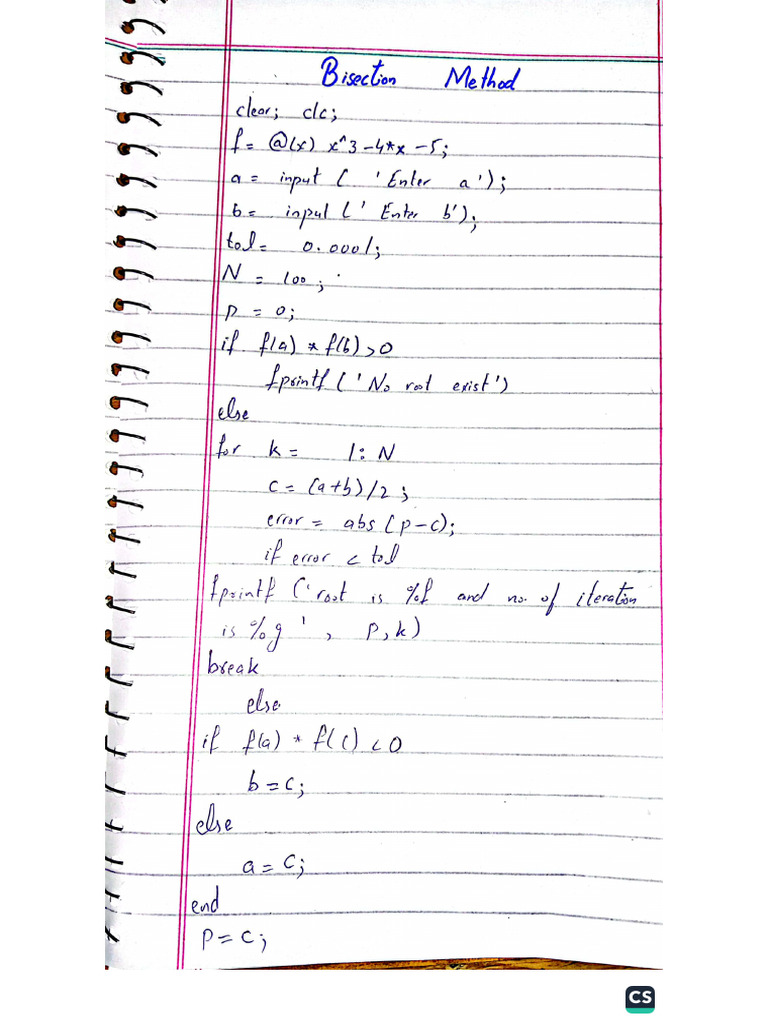 Bisection Method
clear; clc;
f= @(x) x^3-4*x-5;
a= input ( 'Enter a');
b= input (' Enter b');
tol= 0.0001;
N = 100;
p = 0;
if f(a) * f(b)>0
fprintf ('No root exist')
else
for k= 1:N
c=(a+b)/2;
error= abs(p-c);
if error < tol
fprintf ('root is %f and no. of iteration
is %g ' , p,k)
break
else
if f(a) * f(c) <0
b=c;
else
a=c;
end
p=c;
CS